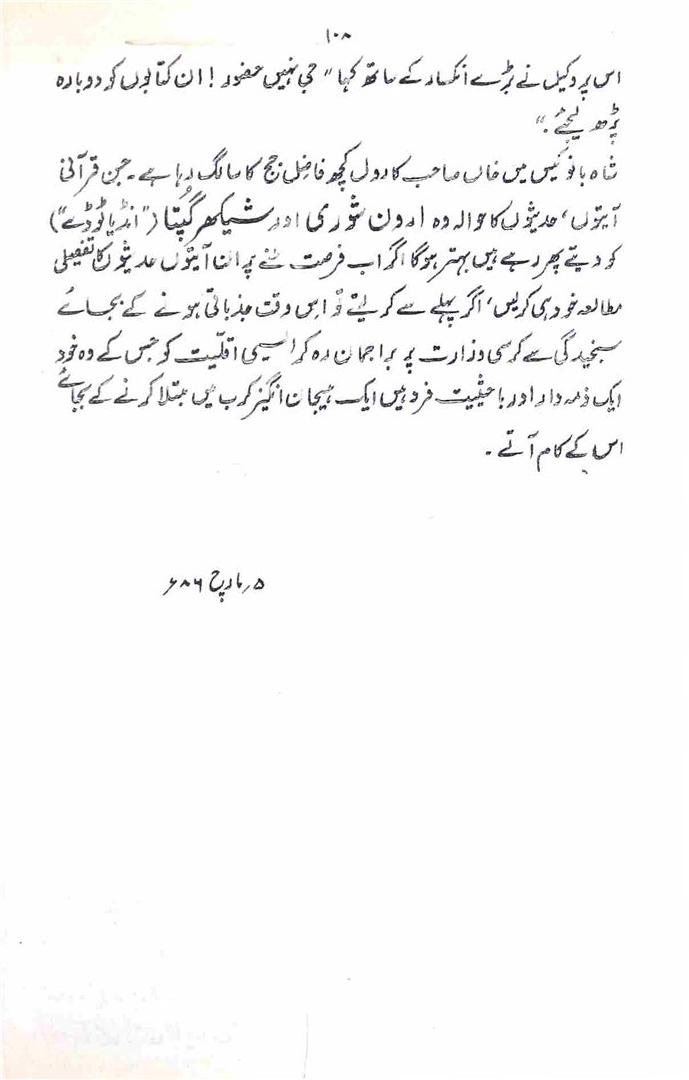 ۱۰۸
اس پر وکیل نے بڑے انکسار کے ساتھ کہا "جی نہیں حضور! ان کتابوں کو دوبارہ
پڑھ لیجئے۔"
شاہ بانو کیس میں خاں صاحب کا رول کچھ فاضل جج کا سا لگ رہا ہے۔ جن قرآنی
آیتوں، حدیثوں کا حوالہ وہ ارون شوری اور شیکھر گپتا ("انڈیا ٹوڈے")
کو دیتے پھر رہے ہیں بہتر ہوگا اگر اب فرصت ملنے پر ان آیتوں حدیثوں کا تفصیلی
مطالعہ خود ہی کرلیں، اگر پہلے سے کرلیتے تو اس وقت جذباتی ہونے کے بجائے
سنجیدگی سے کرسی وزارت پر براجمان رہ کر ایسی اقلیت کو جس کے وہ خود
ایک ذمہ دار اور باحیثیت فرد ہیں ایک ہیجان انگیز کرب میں مبتلا کرنے کے بجائے
اس کے کام آتے۔
۵؍مارچ ۸۶ء